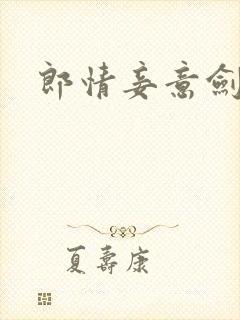 郎情妾意劍
夏壽康